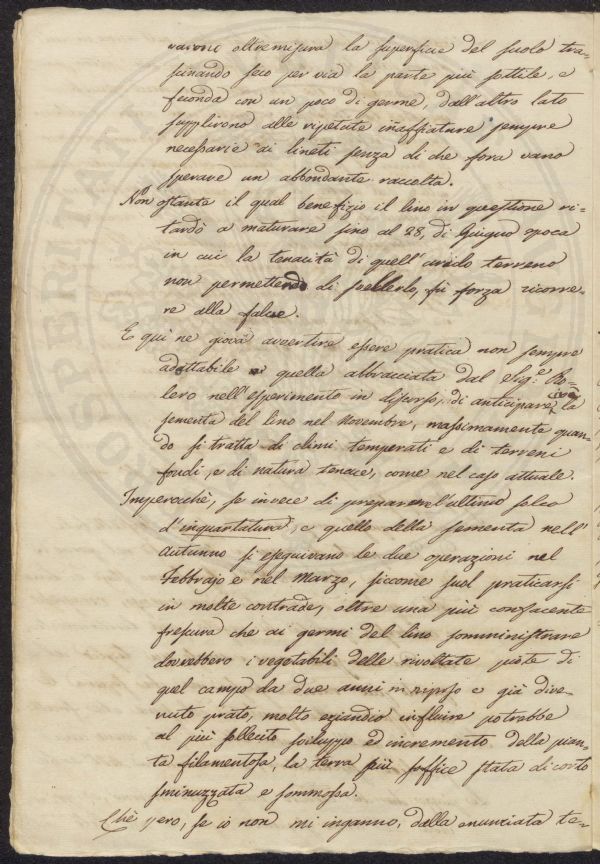 varono oltremisura la superficie del suolo tra-
scinando seco per via la parte più sottile, e
feconda con un poco di germe, dall'altro lato
supplirono alle ripetute inaffiature sempre
necessarie ai lineti senza di che fora vano
sperare un abbondante raccolta.
Non ostante il qual benefizio il lino in questione ri-
tardò a maturare fino al 28, di Giugno epoca
in cui la tenacità di quell'arido terreno
non permettendo di svellerlo, fu forza ricorre-
re alla falce.
E qui ne giova avvertire essere pratica non sempre
adottabile quella abbracciata dal Sig.e Bo-
lero nell'esperimento in discorso, di anticipare la
sementa del lino nel Novembre, massimamente quan-
do si tratta di climi temperati e di terreni
fondi, e di natura tenace, come nel caso attuale.
Imperocchè, se invece di preparare l'ultimo solco
d'inquartatura, e quello della sementa nell'
Autunno si eseguivano le due operazioni nel
Febbrajo e nel Marzo, siccome suol praticarsi
in molte contrade, oltre una più confacente
frescura che ai germi del lino somministrare
dovrebbero i vegetabili delle rivoltate piote di
quel campo da due anni in riposo e già dive-
nuto prato, molto eziandio influire potrebbe
al più sollecito sviluppo ed incremento della pian-
ta filamentosa, la terra più soffice stata di corto
sminuzzata e sommossa.
Che però, se io non mi inganno, dalla enunciata te-
PROSPERITATI